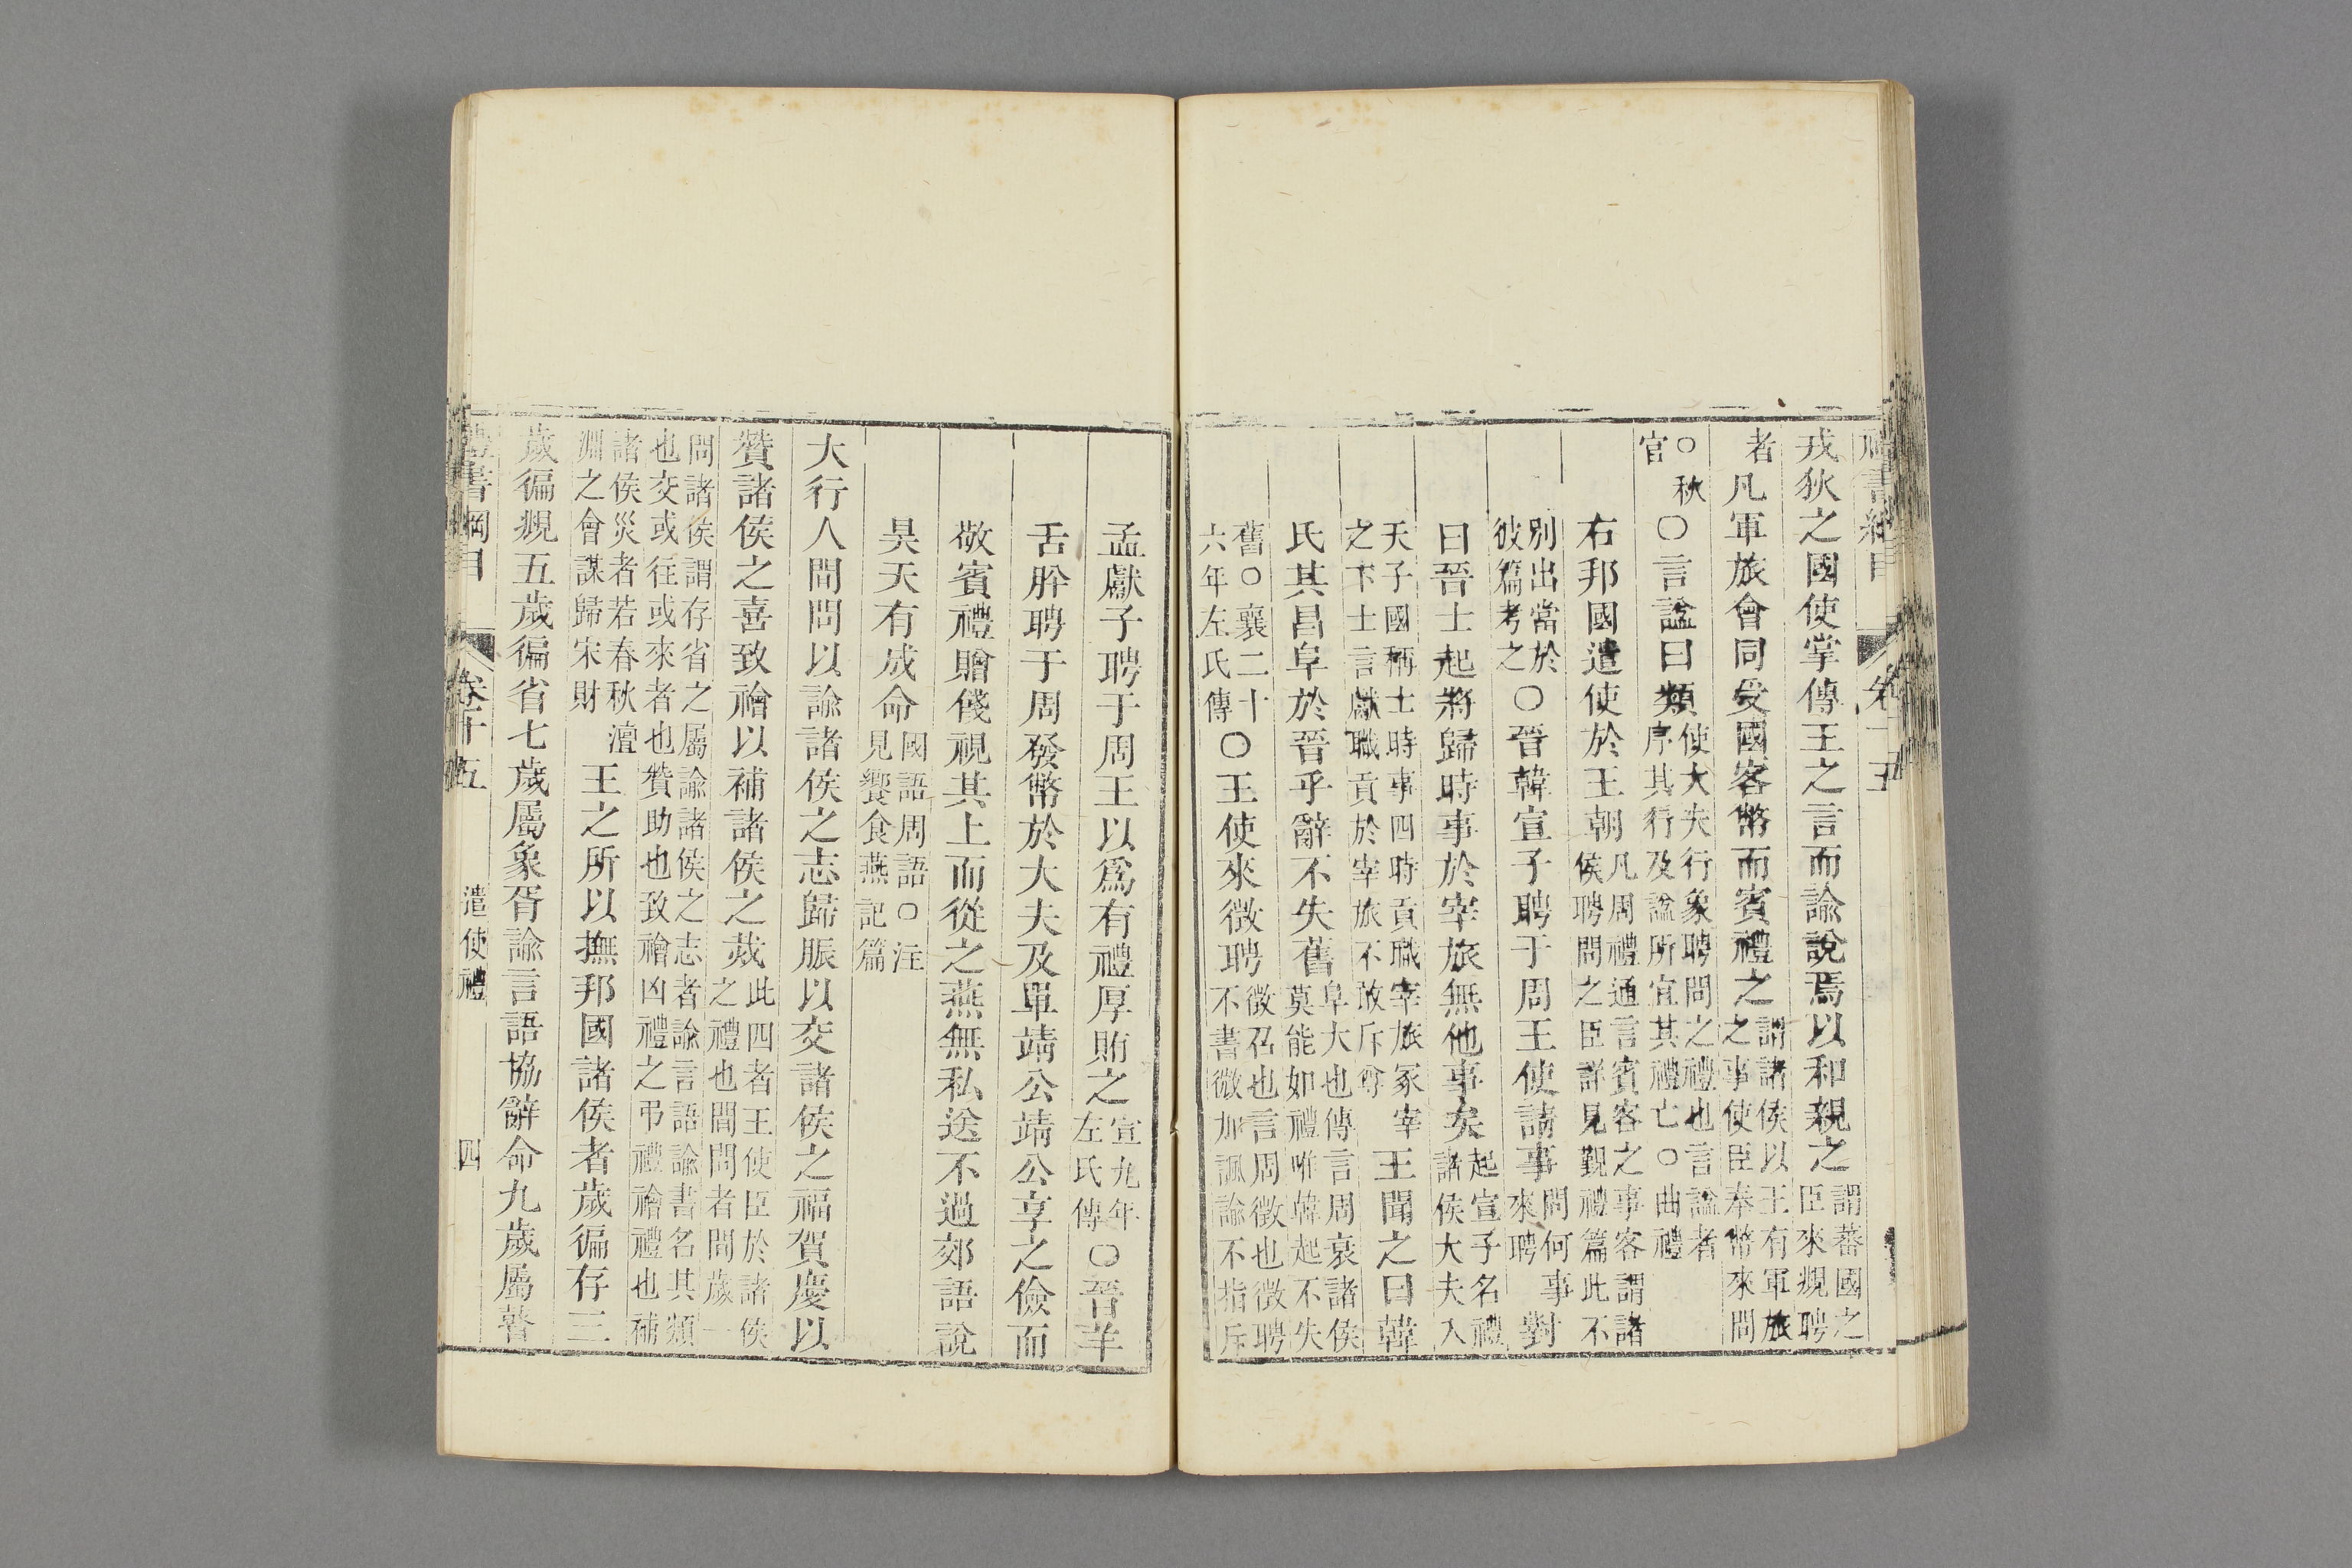 戎狄之國使掌傳王之言而諭說焉以和親之謂蕃國之臣來覜聘
者凡軍旅會同受國客幣而賓禮之謂諸侯以王有軍旅之事使臣奉幣來問
○秋官○言諡曰類使大夫行象聘問之禮也言諡者序其行及諡所宜其禮亡○曲禮
右邦國遣使於王朝凡周禮通言賓客之事客謂諸侯聘問之臣詳見覲禮篇此不
別出當於彼篇考之○晉韓宣子聘于周王使請事問何事來聘對
曰晉士起將歸時事於宰旅無他事矣起宣子名禮諸侯大夫入
天子國稱士時事四時貢職宰旅冢宰之下士言獻職貢於宰旅不敢斥尊王聞之曰韓
氏其昌阜於晉乎辭不失舊阜大也傳言周衰諸侯莫能如禮唯韓起不失
舊○襄二十六年左氏傳○王使來徵聘徵召也言周徵也徵聘不書徵加諷諭不指斥
孟獻子聘于周王以爲有禮厚賄之宣九年左氏傳○晉羊
舌肸聘于周發幣於大夫及單靖公靖公享之儉而
敬賓禮贈餞視其上而從之燕無私送不過郊語說
昊天有成命國語周語○注見饗食燕記篇
大行人間問以諭諸侯之志歸脤以交諸侯之福賀慶以
贊諸侯之喜致禬以補諸侯之烖此四者王使臣於諸侯之禮也間問者間歲一
問諸侯謂存省之屬諭諸侯之志者諭言語諭書名其類也交或往或來者也贊助也致禬凶禮之弔禮禬禮也補
諸侯災者若春秋澶淵之會謀歸宋財王之所以撫邦國諸侯者歲徧存三
歲徧覜五歲徧省七歲屬象胥諭言語協辭命九歲屬瞽
禮書綱目 卷十五 遣使禮 四